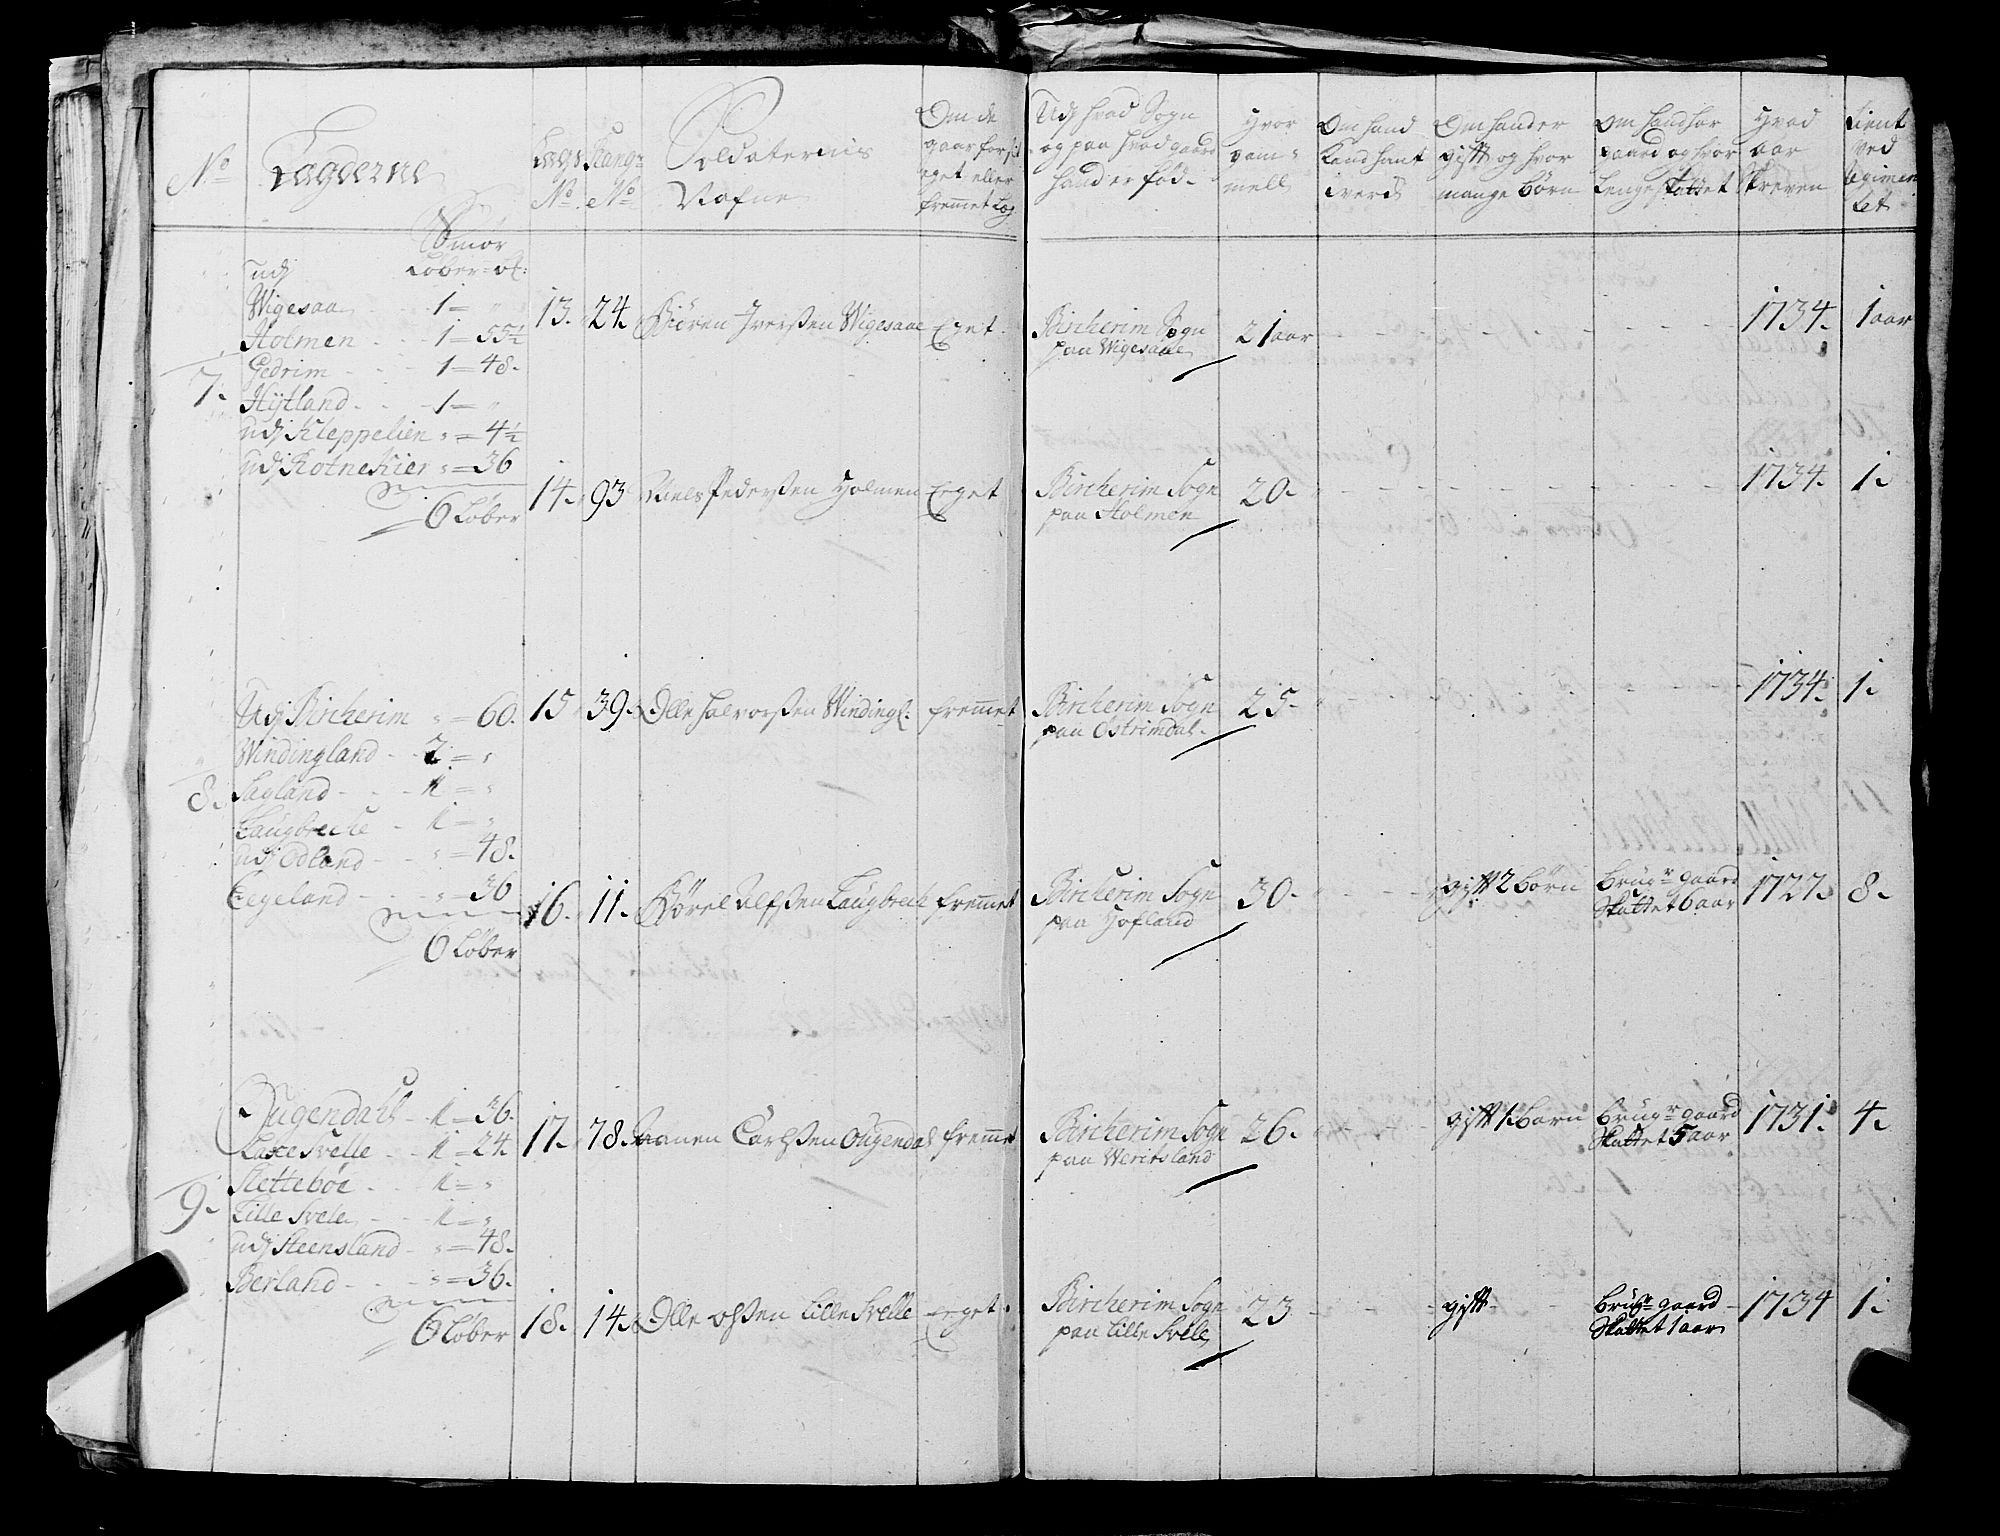 No Lægderne Lægs No Rangs No Soldaternis Nafne Om de gaar for sit eget eller fremmet Læg
Udj hvad Sogn og paa hvad gaard hand er fød. Hvor gammell Om hand kand hant Om hand er gift og hvor mange børn Om hand har gaard og hvor lenge skattet Hvad aar skreven Tient ved Regimentet
Smør
Løber
udj
Wigesaa 1 = "
Holmen 1 = 55½
Gedrim 1 = 48.
7. Hytland 1 = "
udj Kleppelien " = 4½
udj Rotnekier " = 36
6 Løber
13. 24. Biøren Iverssen Wigesaae Eget. Bircherim Sogn paa Wigesaae 21 aar 1734. 1 aar
14. 93 Niels Pederssen Holmen Eeget Bircherim Sogn paa Holmen 20. 1734. 1.
Udj Bircherim " = 60.
Windingland 2 = "
8. Sagland 1 = "
Laugbreche 1 = "
udj Odland " = 48.
Eegeland " = 36
6 Løber
15 39. Olle Halvorssen Windingl. fremmet Bircherim Sogn paa Østrimdal. 25. 1734. 1.
16. 11. Børel Alfssen Laugbrech fremmet Bircherim Sogn paa Hofland 30. gift 2 børn Brugr gaard Skattet 6 aar 1727. 8.
Ougendahl 1 = 36.
Laxesvelle 1 = 24.
Slettebøe 1 = "
9. Lille Svele 1 = "
udj Steensland " = 48.
Berland " = 36.
6 Løber
17. 78. Aanen Carlssen Ougendal fremmet Bircherim Sogn paa Weritsland 26. gift 1. Barn Brugr gaard Skattet 5 aar 1731. 4.
18. 14. Olle Olssen Lille Svelle eeget. Bircherim Sogn paa Lille Svele 23 gift Brugr gaard Skattet 1 aar 1734 1.